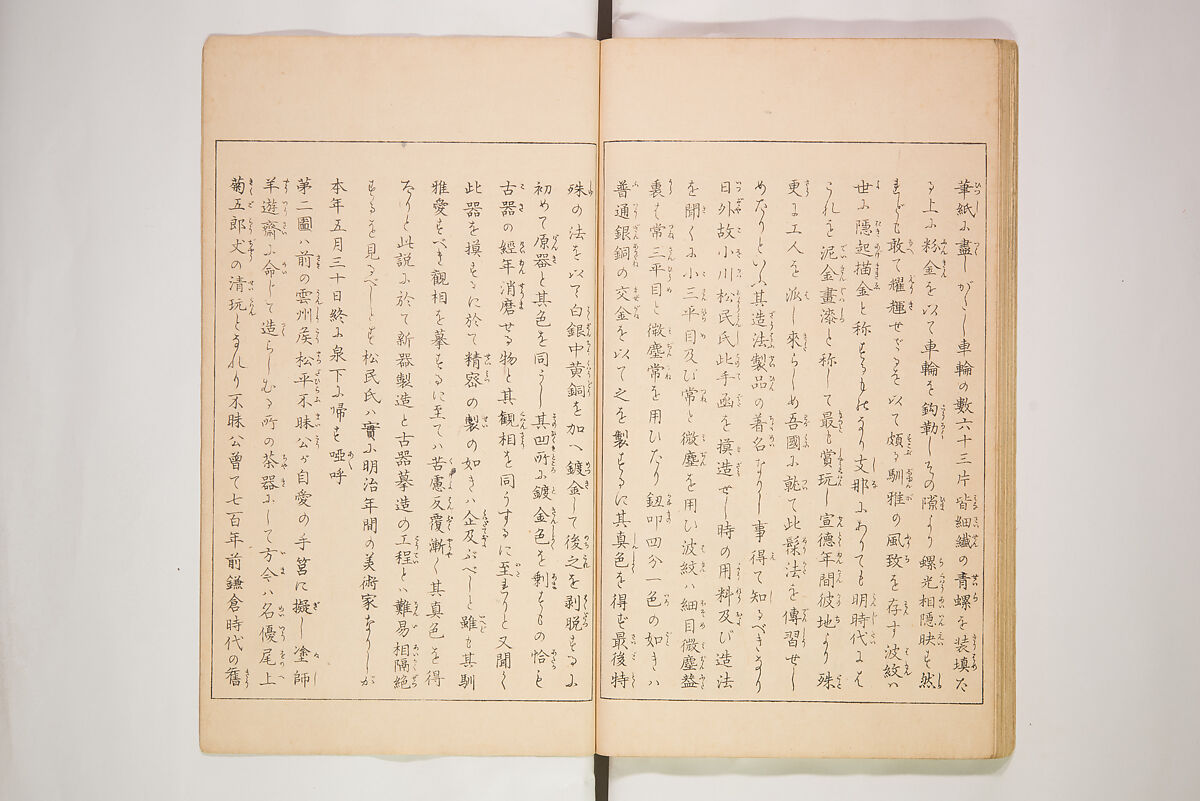 筆紙に盡しがたし車輪の數六十三片皆細纎の青螺を装填た
る上に粉金を以て車輪を鈎勒しその隙より螺光相隠映も然
れども敢て耀輝せざるを以て頗る馴雅の風致を存す波紋ハ
世に隠起描金と称するものなり支那にありても明時代には
これを泥金畫漆と称して最も賞玩し宣德年間彼地より殊
更に工人を派し來らしめ吾國に就て此髹法を傳習せし
めたりといふ其造法製品の著名なりし事得て知るべきなり
日外故小川松民氏此手函を摸造せし時の用料及び造法
を聞くに小三平目及び常と微塵を用ひ波紋ハ細目微塵盆
裏は常三平目と微塵常を用ひたり鈕叩四分一色の如きハ
普通銀銅の交金を以て之を製するに其真色を得ず最後特
殊の法を以て白銀中黄銅を加へ鍍金して後之を剥脱するに
初めて原器と其色を同うし其凹所に鍍金色を剰すもの恰も
古器の經年消磨せる物と其觀相を同うするに至れりと又聞く
此器を摸するに於て精密の製の如きハ企及ぶべしと雖も其馴
雅愛すべき觀相を摹するに至てハ苦慮反覆漸く其真色を得
たりと此説に於て新器製造と古器摹造の工程とハ難易相隔絶
するを見るべしとも松民氏ハ實に明治年間の美術家なりしが
本年五月三十日終に泉下に帰す啞呼
第二圖ハ前の雲州侯松平不昧公が自愛の手筥に擬し塗師
羊遊齋に命じて造らしむる所の茶器にして方今ハ名優尾上
菊五郎丈の清玩となれり不昧公曾て七百年前鎌倉時代の舊